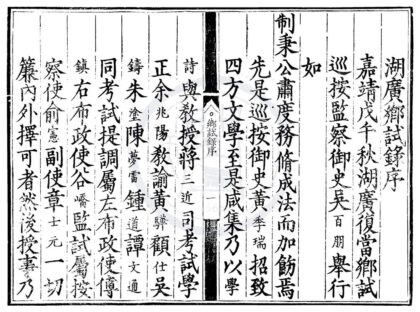 湖廣鄉試錄序
嘉靖戊午秋湖廣復當鄉試
巡按監察御史吳百朋舉行
如
制秉公肅度務脩成法而加飭焉
先是巡按御史黃季瑞招致
四方文學至是咸集乃以學
鄉試錄序
一
詩輿教授將三近司考試學
正余兆陽教諭黃驊顧仕吳
鑄朱塗陳夢雷鍾道譚文通
同考試提調屬左布政使傅
鎮右布政使谷嶠監試屬按
察使俞憲副使章士元一切
簾內外擇可者然後授事乃